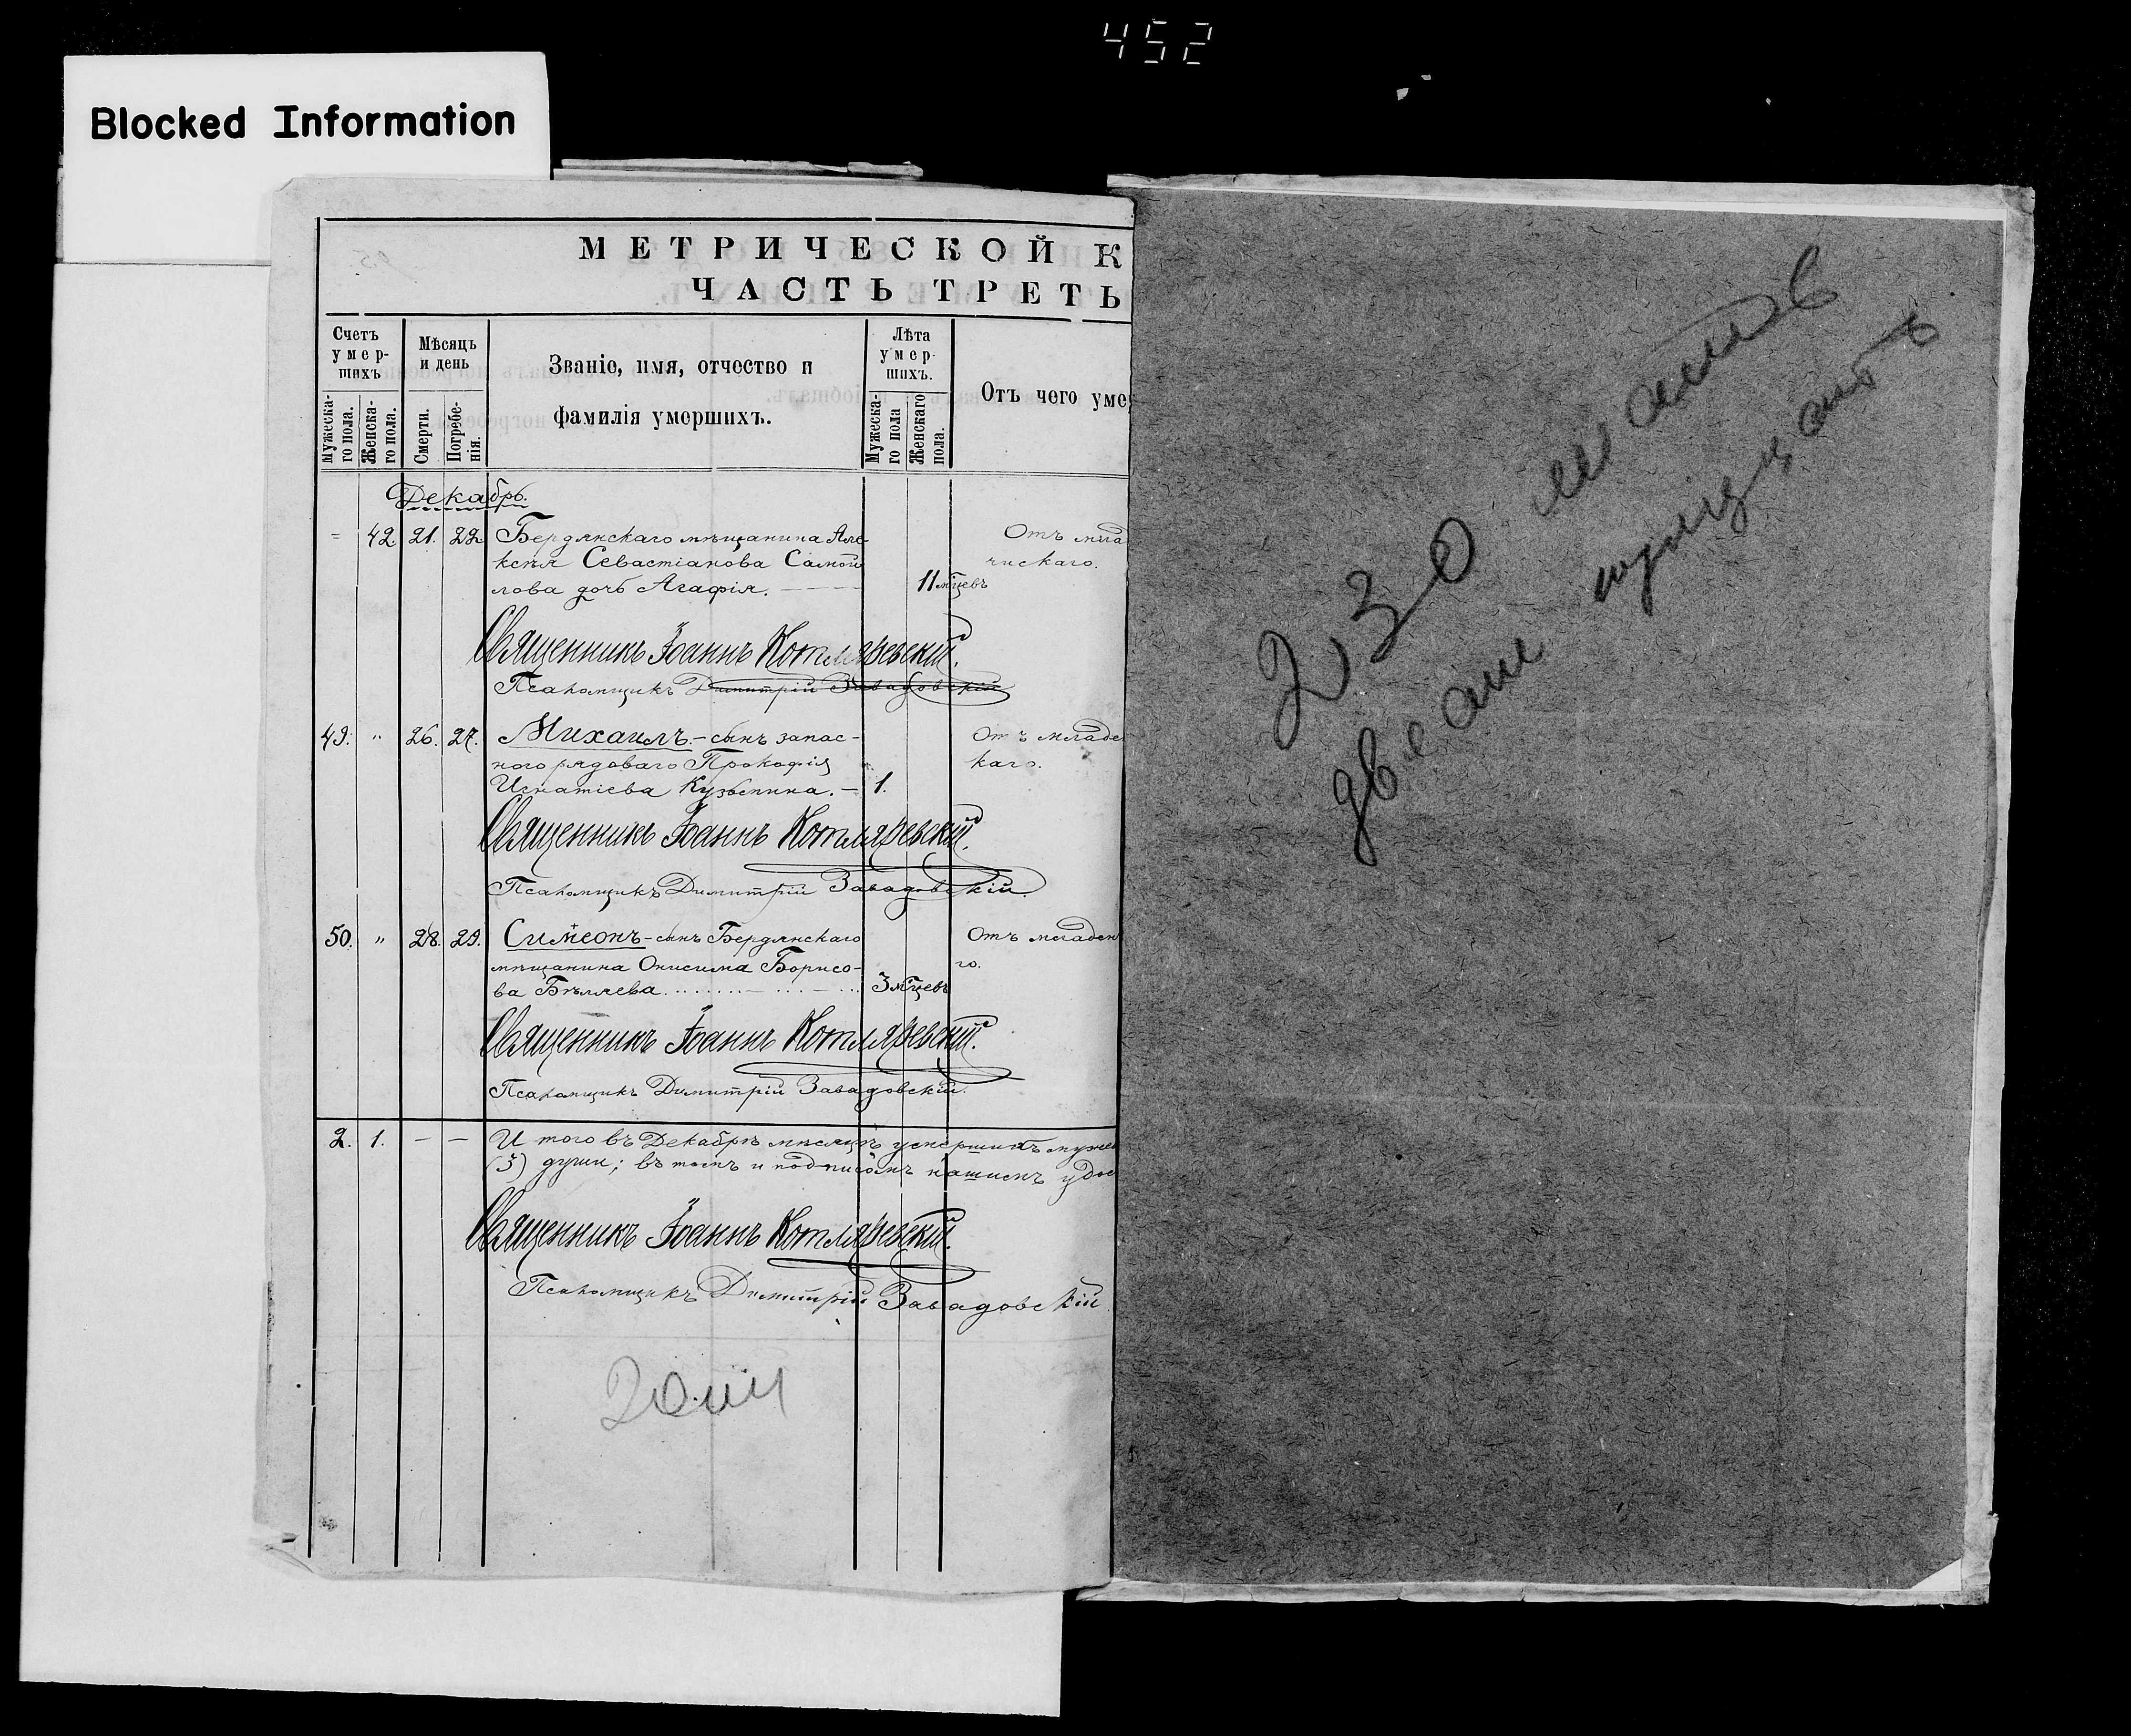 452
Blocked Information
МЕТРИЧЕСКОЙ К
ЧАСТЬ ТРЕТЬ
Счетъ умер-шихъ
Мужеска-го пола.
Женска-го пола.
Мѣсяцъ и день
Смерти.
Погребе-нія.
Званіе, имя, отчество и
фамилія умершихъ.
Лѣта умер-шихъ.
Мужеска-го пола
Женскаго пола.
Отъ чего уме
Декабрь.
42. 21. 22. Бердянскаго мѣщанина Але- Отъ млад
ксѣя Севастіанова Самой ческаго.
лова дочь Агафія. 11 мцевъ
Священникъ Іоаннъ Котляревскій.
Псаломщикъ Димитрій Завадовскій
49. " 26. 27. Михаилъ - сынъ запас- Отъ младе
ного рядоваго Прокофія каго.
Игнатіева Кузьмина. - 1.
Священникъ Іоаннъ Котляревскій.
Псаломщикъ Димитрій Завадовскій.
50. " 28. 29. Симеонъ - сынъ Бердянскаго Отъ младен
мѣщанина Онисима Борисо- го.
ва Бѣляева. 3 мцевъ
Священникъ Іоаннъ Котляревскій.
Псаломщикъ Димитрій Завадовскій.
2. 1. - - Итого въ Декабрѣ мѣсяцѣ умершихъ мужес
(3) души; въ томъ и подписомъ нашимъ удос
Священникъ Іоаннъ Котляревскій.
Псаломщикъ Димитрій Завадовскій
230